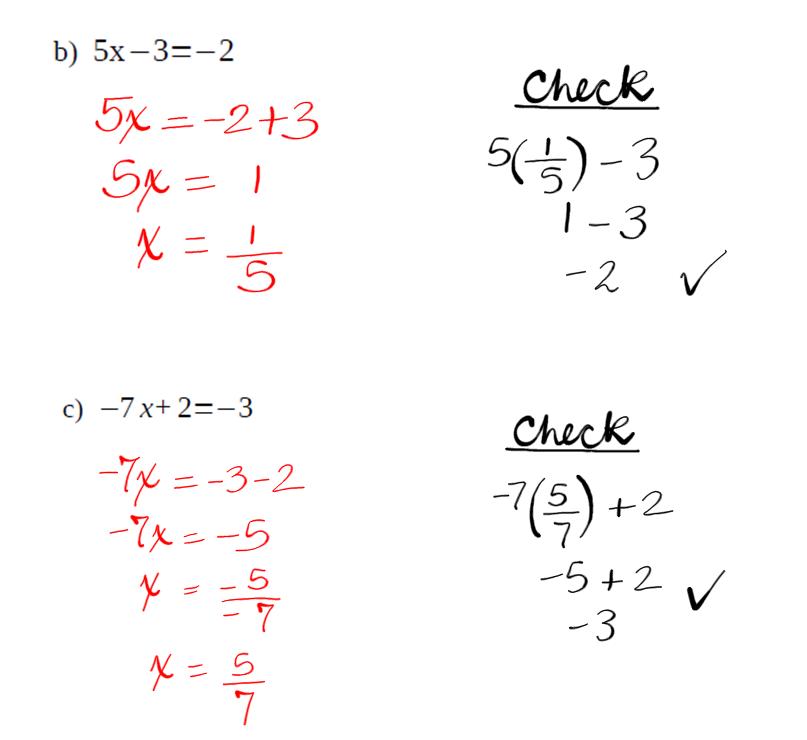 b) 5x−3=−2
5x = -2+3
5x = 1
x = 1/5
Check
5(1/5) - 3
1 - 3
-2 ✓
c) −7x+2=−3
-7x = -3-2
-7x = -5
x = -5/-7
x = 5/7
Check
-7(5/7) + 2
-5 + 2 ✓
-3